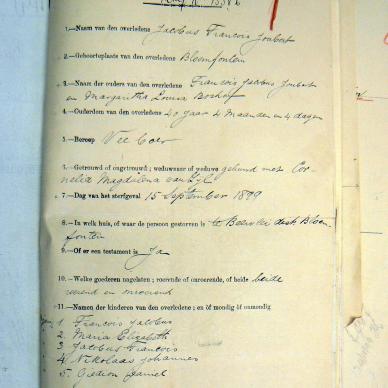 1.—Naam van den overledene Jacobus Francois Joubert
2.—Geboorteplaats van den overledene Bloemfontein
3.—Naam der ouders van den overledene Francois Jacobus Joubert
en Margaretha Louisa Boshof
4.—Ouderdom van den overledene 40 jaar 4 maanden en 4 dagen
5.—Beroep Vee Boer
6.—Getrouwd of ongetrouwd; weduwnaar of weduwe gehuwd met Cor-
nelia Magdalena van Zijl
7.—Dag van het sterfgeval 15 September 1899
8.—In welk huis, of waar de persoon gestorven is te distr Bloem
fontein
9.—Of er een testament is Ja
10.—Welke goederen nagelaten; roerende of onroerende, of beide beide
roerend en onroerend
11.—Namen der kinderen van den overledene; en òf mondig òf onmondig
1 Francois Jacobus
2. Maria Elizabeth
3 Jacobus Francois
4 Nikolaas Johannes
5. Gedion Daniel